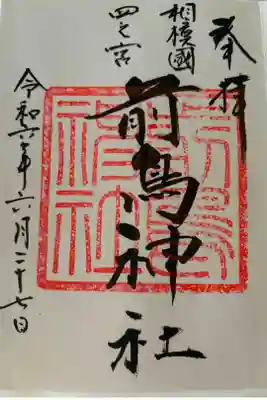 奉拝
相模國
四之宮
前鳥神社
令和六年六月二十七日
前鳥神社